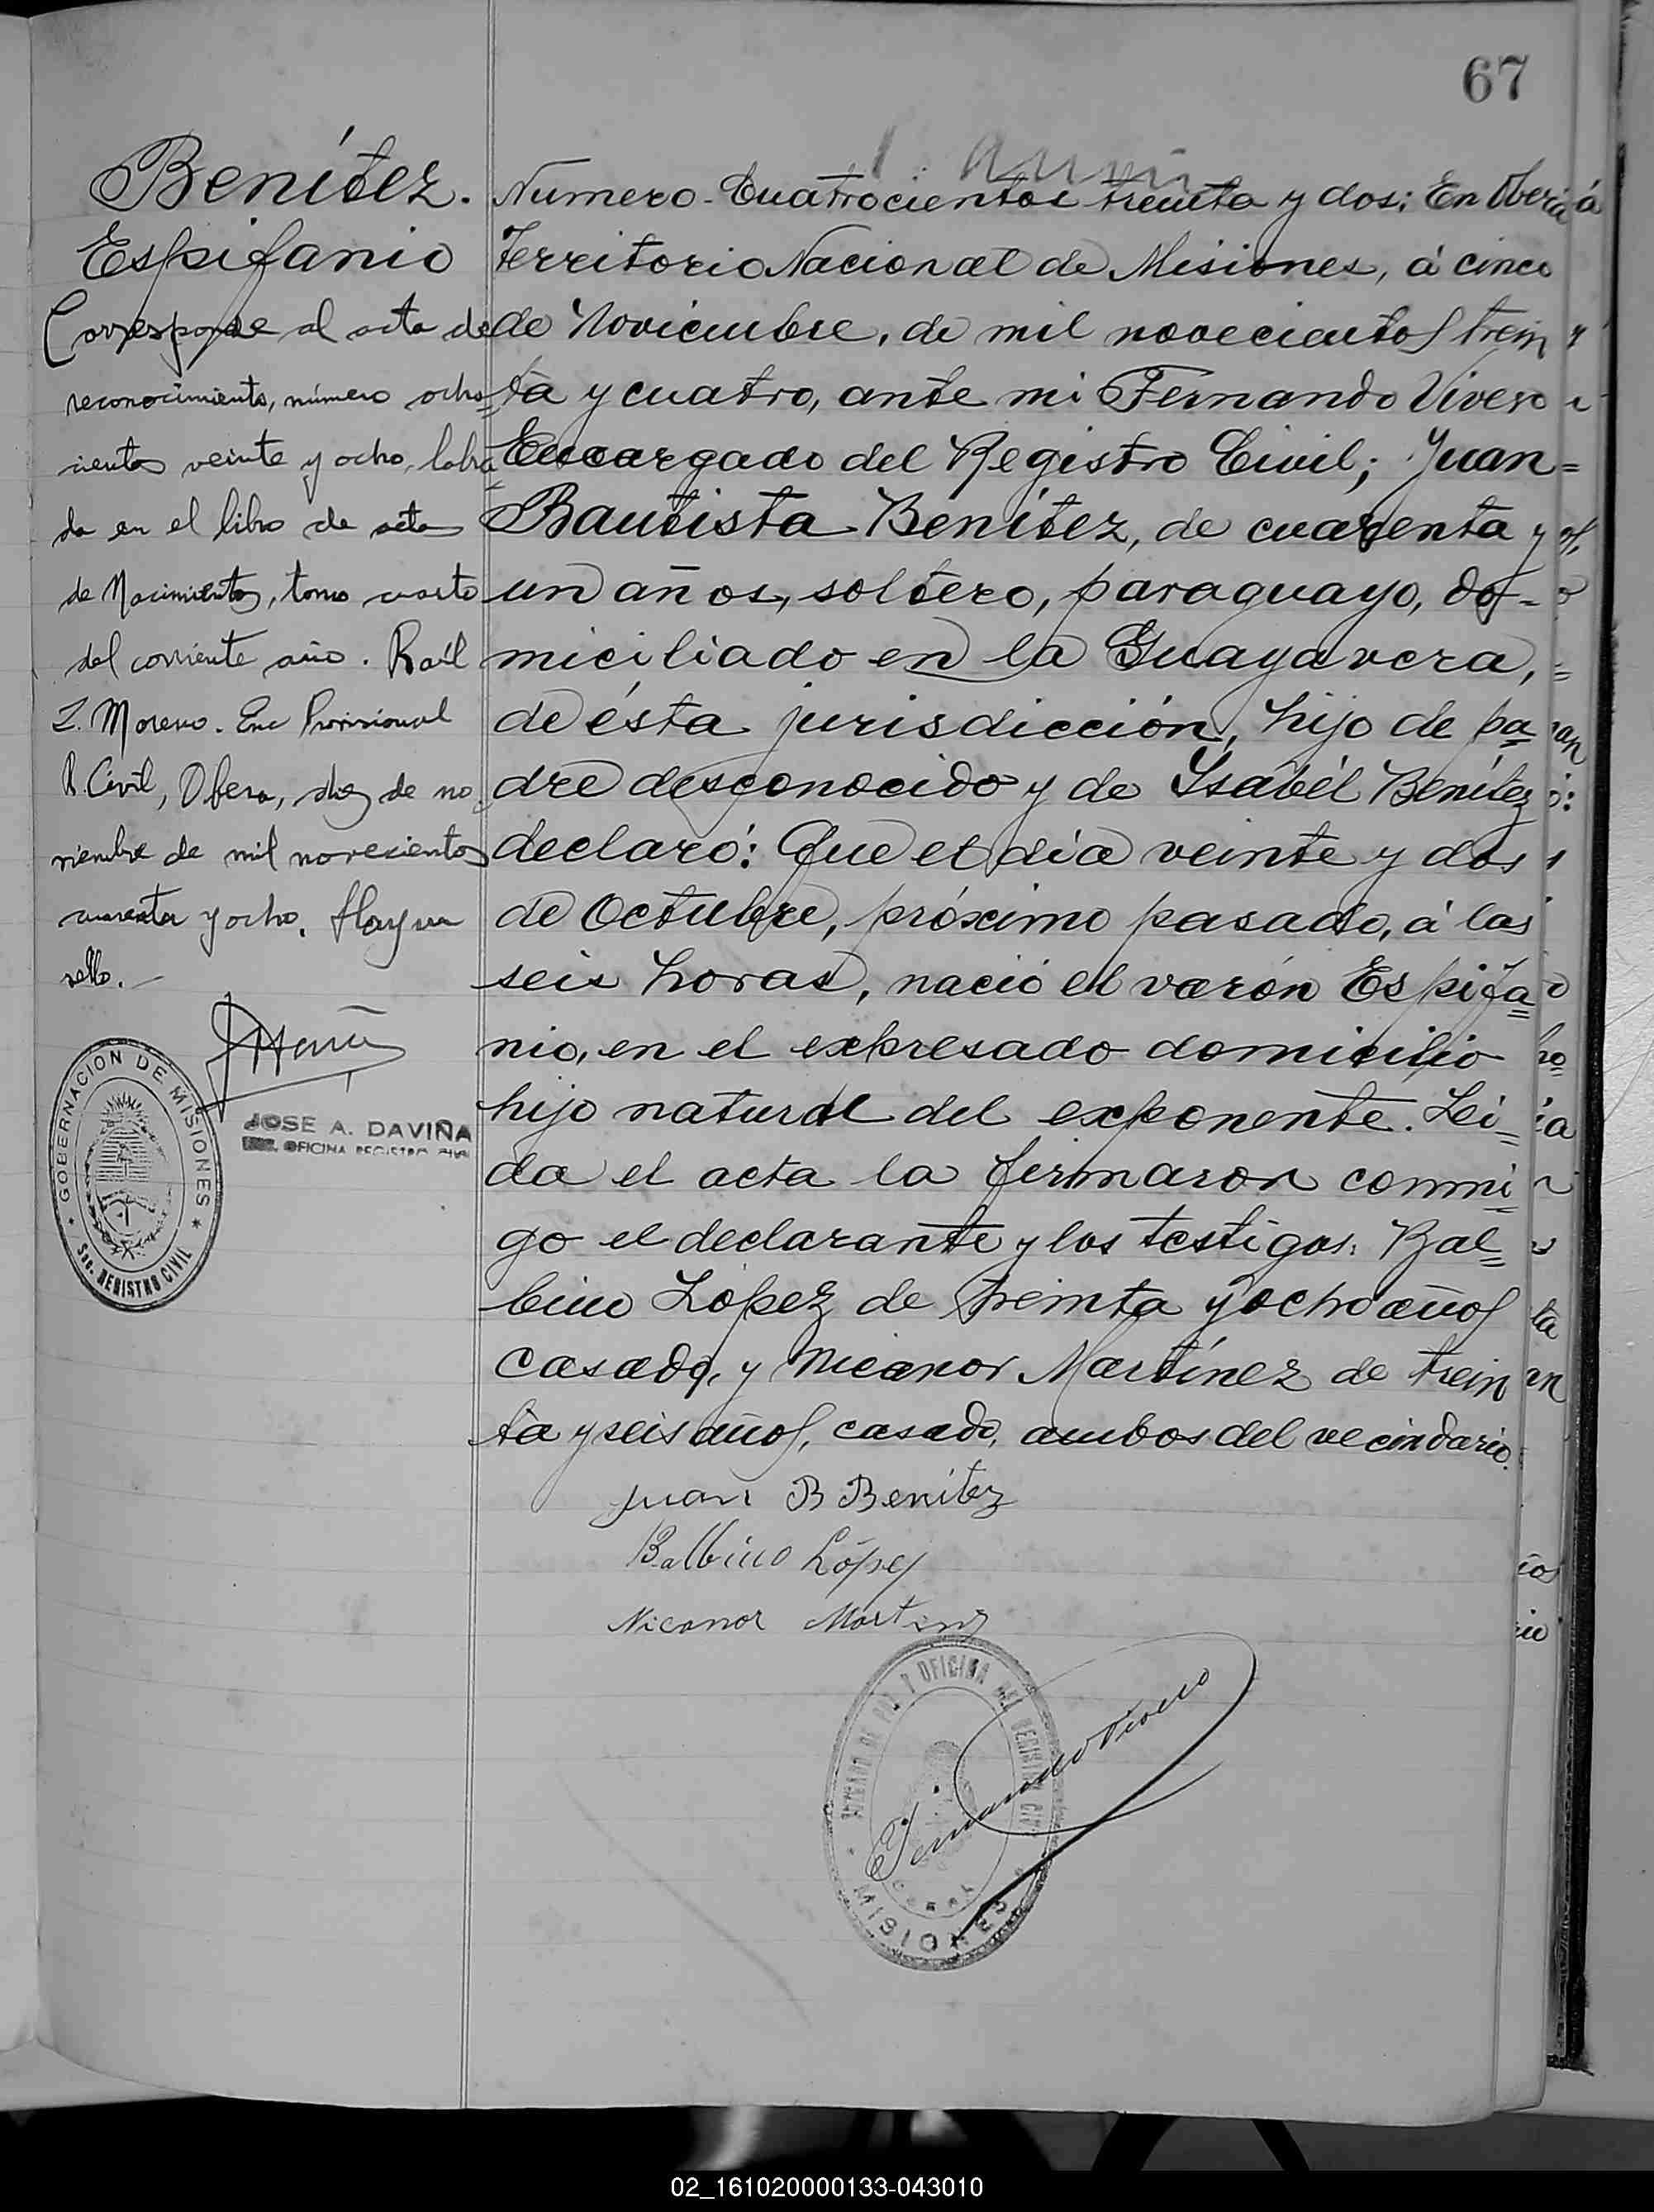 67
Benítez.
Espifanio
Corresponde al acta de
reconocimiento, número ocho-
cientos veinte y ocho, labra-
da en el libro de acta
de Nacimientos, tomo cuarto
del corriente año. Raúl
L. Moreno. Enc Provisional
R. Civil, Obera, diez de no-
viembre de mil novecientos
cuarenta y ocho. Hay un
sello.-
JOSE A. DAVIÑA
OFICINA REGISTRO CIVIL
GOBERNACION DE MISIONES
Sec. REGISTRO CIVIL
Numero-Cuatrocientos treinta y dos: En Obera
Territorio Nacional de Misiones, á cinco
de Noviembre, de mil novecientos trein
ta y cuatro, ante mi Fernando Vivero
Encargado del Registro Civil; Juan=
Bautista Benítez, de cuarenta y
un años, soltero, paraguayo, do-
miciliado en la Guayavera,
de ésta jurisdicción, hijo de pa=
dre desconocido y de Ysabél Benítez
declaró: Que el día veinte y dos
de Octubre, próximo pasado, á las
seis horas, nació el varón Espifa=
nio, en el expresado domicilio
hijo natural del exponente. Lei=
da el acta la firmaron conmi=
go el declarante y los testigos: Bal=
bino López de treinta y ocho años
casado, y Nicanor Martínez de trein
ta y seis años, casado, ambos del vecindario.
Juan B Benítez
Balbino López
Nicanor Martinez
JUZGADO DE PAZ Y OFICINA DEL REGISTRO CIVIL
MISIONES
Fernando Vivero
02_161020000133-043010